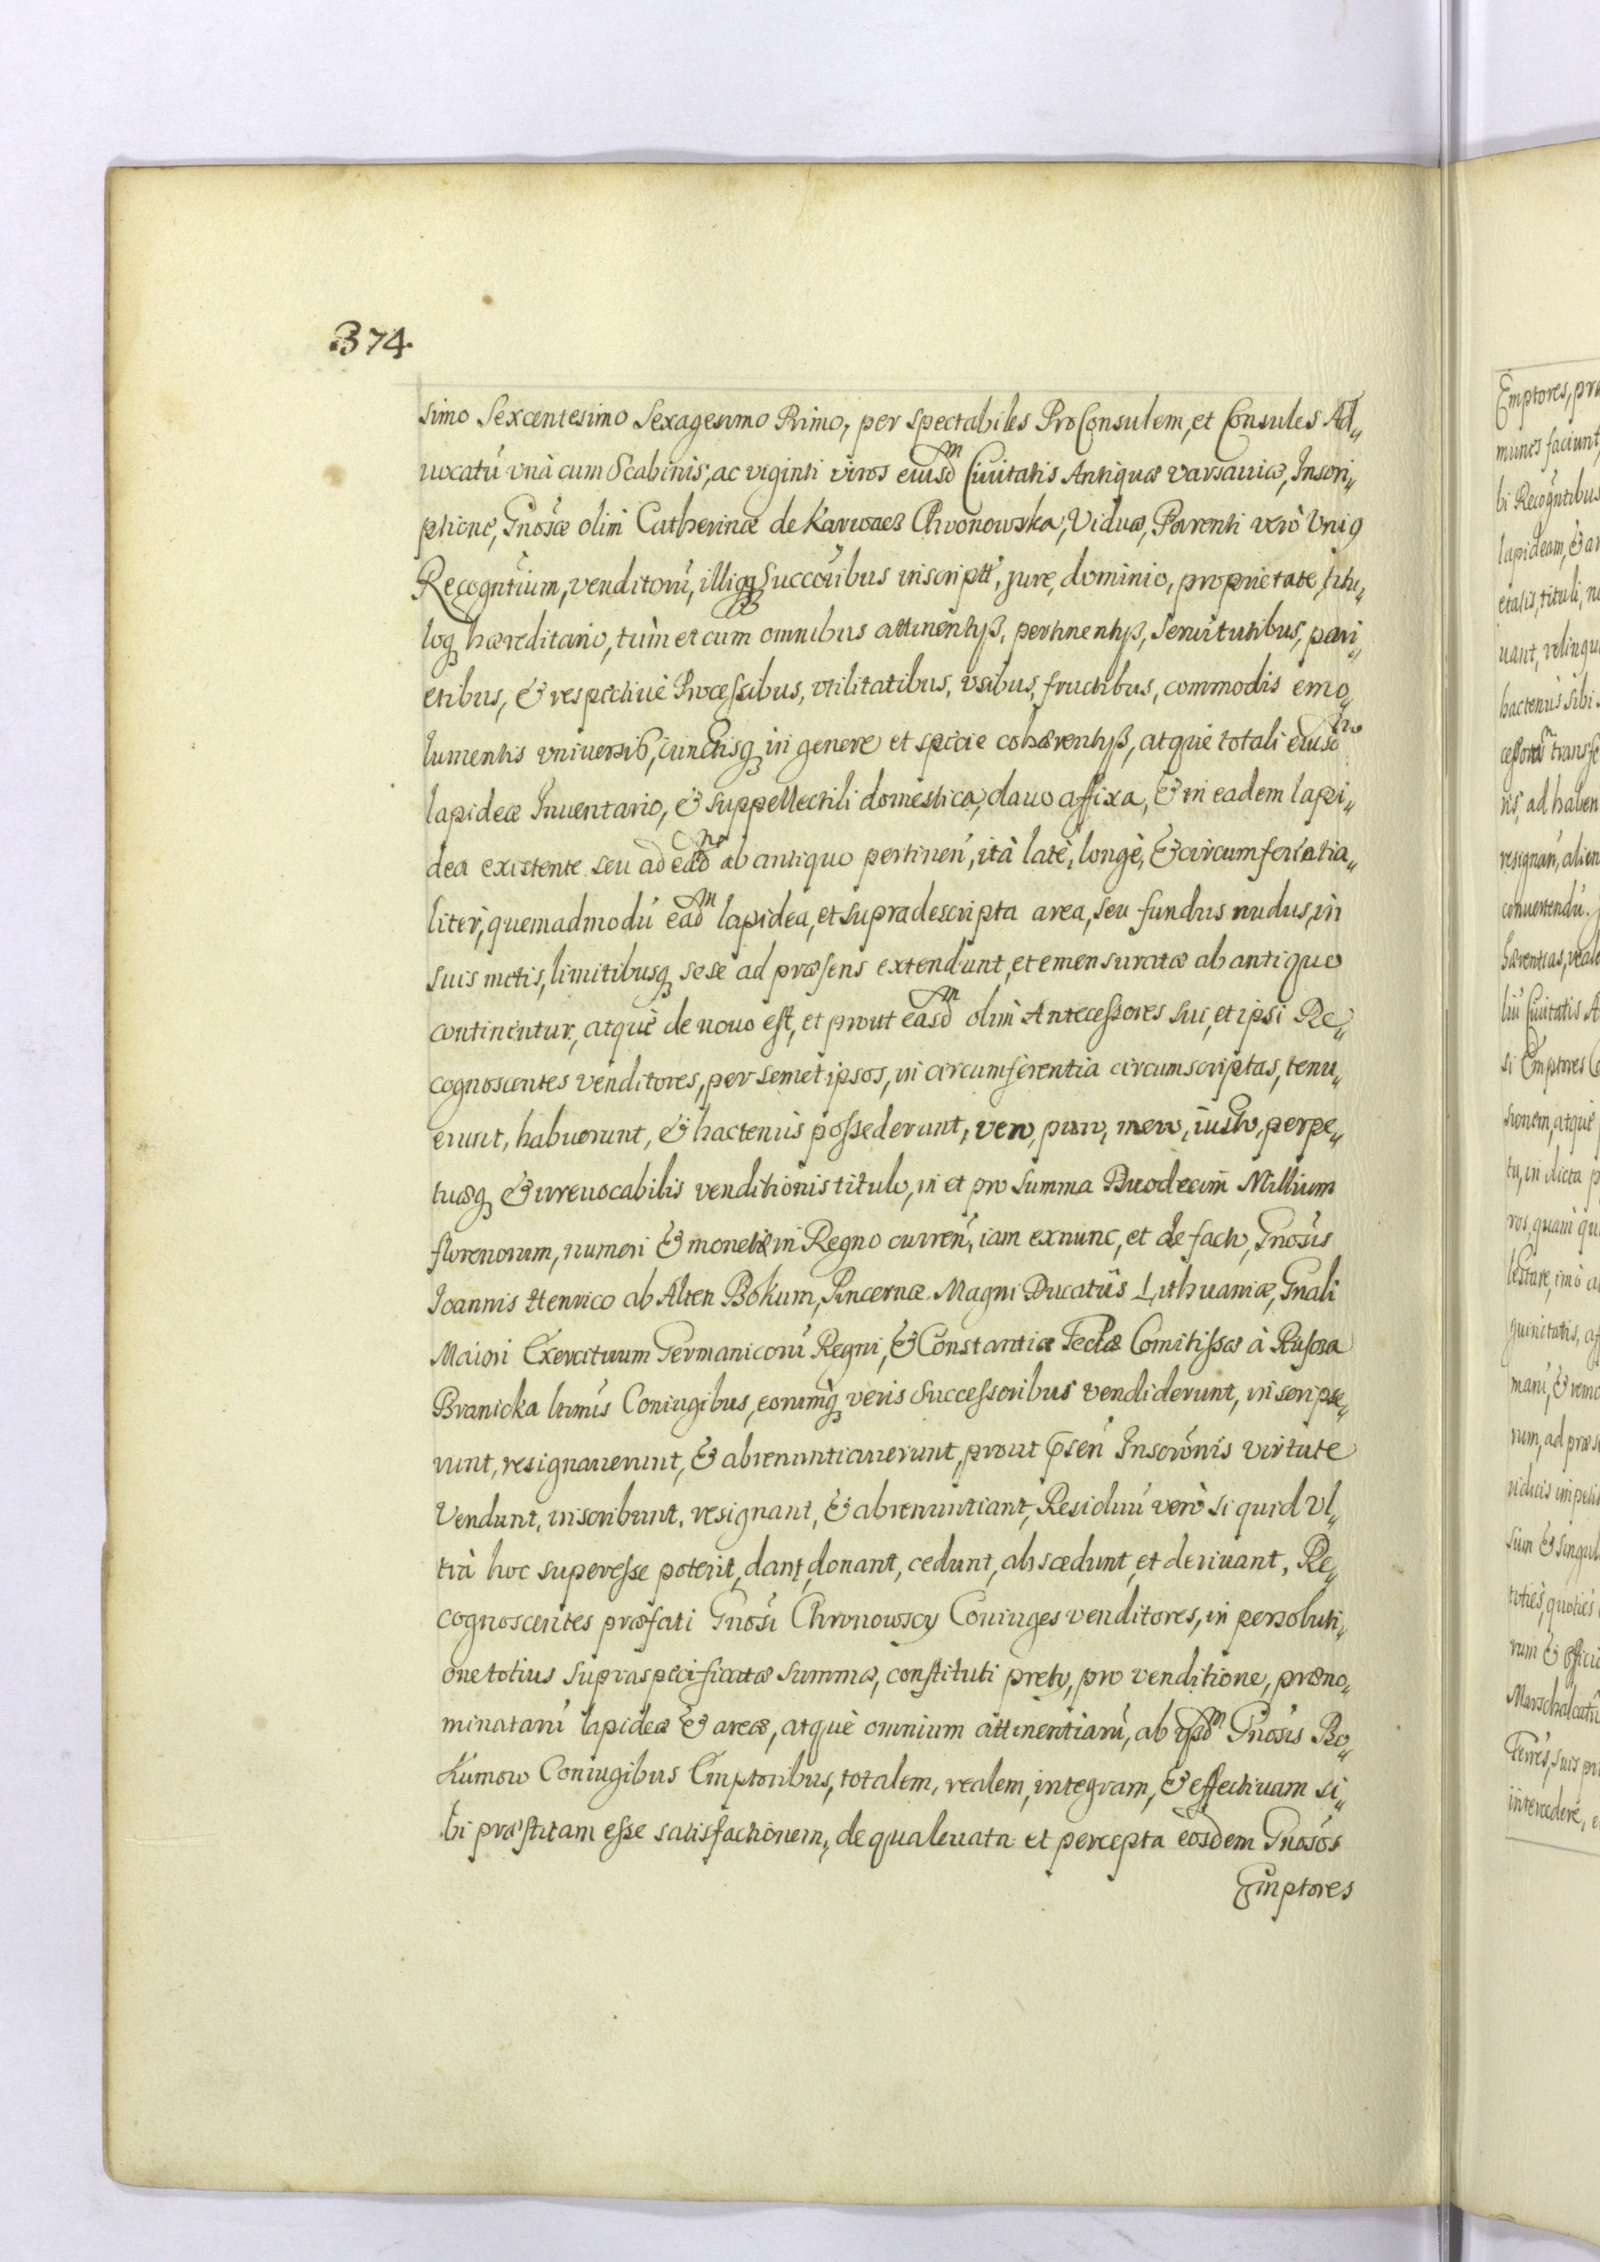 .374.
simo Sexcentesimo Sexagesimo Primo, per spectabiles ProConsulem, et Consules Ad„
uocatú vnà cum Scabinis, ac viginti viros eiusd͞m Ciuitatis Antiquæ Varsauiæ, Inscri„
ptione, Gnosæ olim Catherinæ de Karwacz Chronowska, Viduæ, Parenti verò Vnig
Recogntium, venditorú, illiqq Succoribus inscriptt, jure, dominio, proprietate, titu„
loq hæreditario, tùm et cum omnibus attinentyß, pertinentyß, seruitutibus, pari„
etibus, & respectiuè Processibus, vtilitatibus, vsibus, fructibus, commodis emo„
lumentis vniuersis, cunctisq in genere et specie cohærentyß, atque totali eiusd͞m
lapideæ Inuentario, & suppellectili domestica, clauo affixa, & in eadem lapi„
dea existente seu ad ead͞m ab antiquo pertinen, ità latè, longè, & circumferentia„
liter, quemadmodú ead͞m lapidea, et supradescripta area, seu fundus nudus, in
suis metis, limitibusq sese ad præsens extendunt, et emensuratæ ab antiquo
continentur, atquè de nouo est, et prout easd͞m olim Antecessores sui, et ipsi Re„
cognoscentes venditores, per semet ipsos, in circumferentia circumscriptas, tenu„
erunt, habuerunt, & hactenus possederunt, vero, puro, mero, iusto, perpe„
tuoq & irreuocabilis venditionis titulo, in et pro summa Duodecim Millium
florenorum, numeri & monetæ in Regno curren, iam exnunc, et de facto, Gnosis
Joannis Henrico ab Alten Bokum, Pincernæ Magni Ducatûs Lithuaniæ, Gnali
Maiori Exercituum Germanicorú Regni, & Constantiæ Teclæ Comitissæ à Rusora
Branicka ltimis Coniugibus, eorumq veris Successoribus vendiderunt, inscripse„
runt, resignauerunt, & abrenuntiauerunt, prout psen Inscronis virtute
Vendunt, inscribunt, resignant, & abrenuntiant, Residuú verò si quid Vl„
trà hoc superesse poterit, dant, donant, cedunt, abscedunt, et deriuant, Re„
cognoscentes præfati Gnosi Chronowscy Coniuges venditores, in persoluti„
one totius supraspecificatæ summæ, constituti prety, pro venditione, præno„
minatarú lapideæ & areæ, atquè omnium attinentiarú, ab ipsd͞m Gnosis Bo„
kumow Coniugibus Emptoribus, totalem, realem, integram, & effectiuam si„
bi præstitam esse satisfactionem, de qua leuata et percepta eosdem Gnosos
Emptores